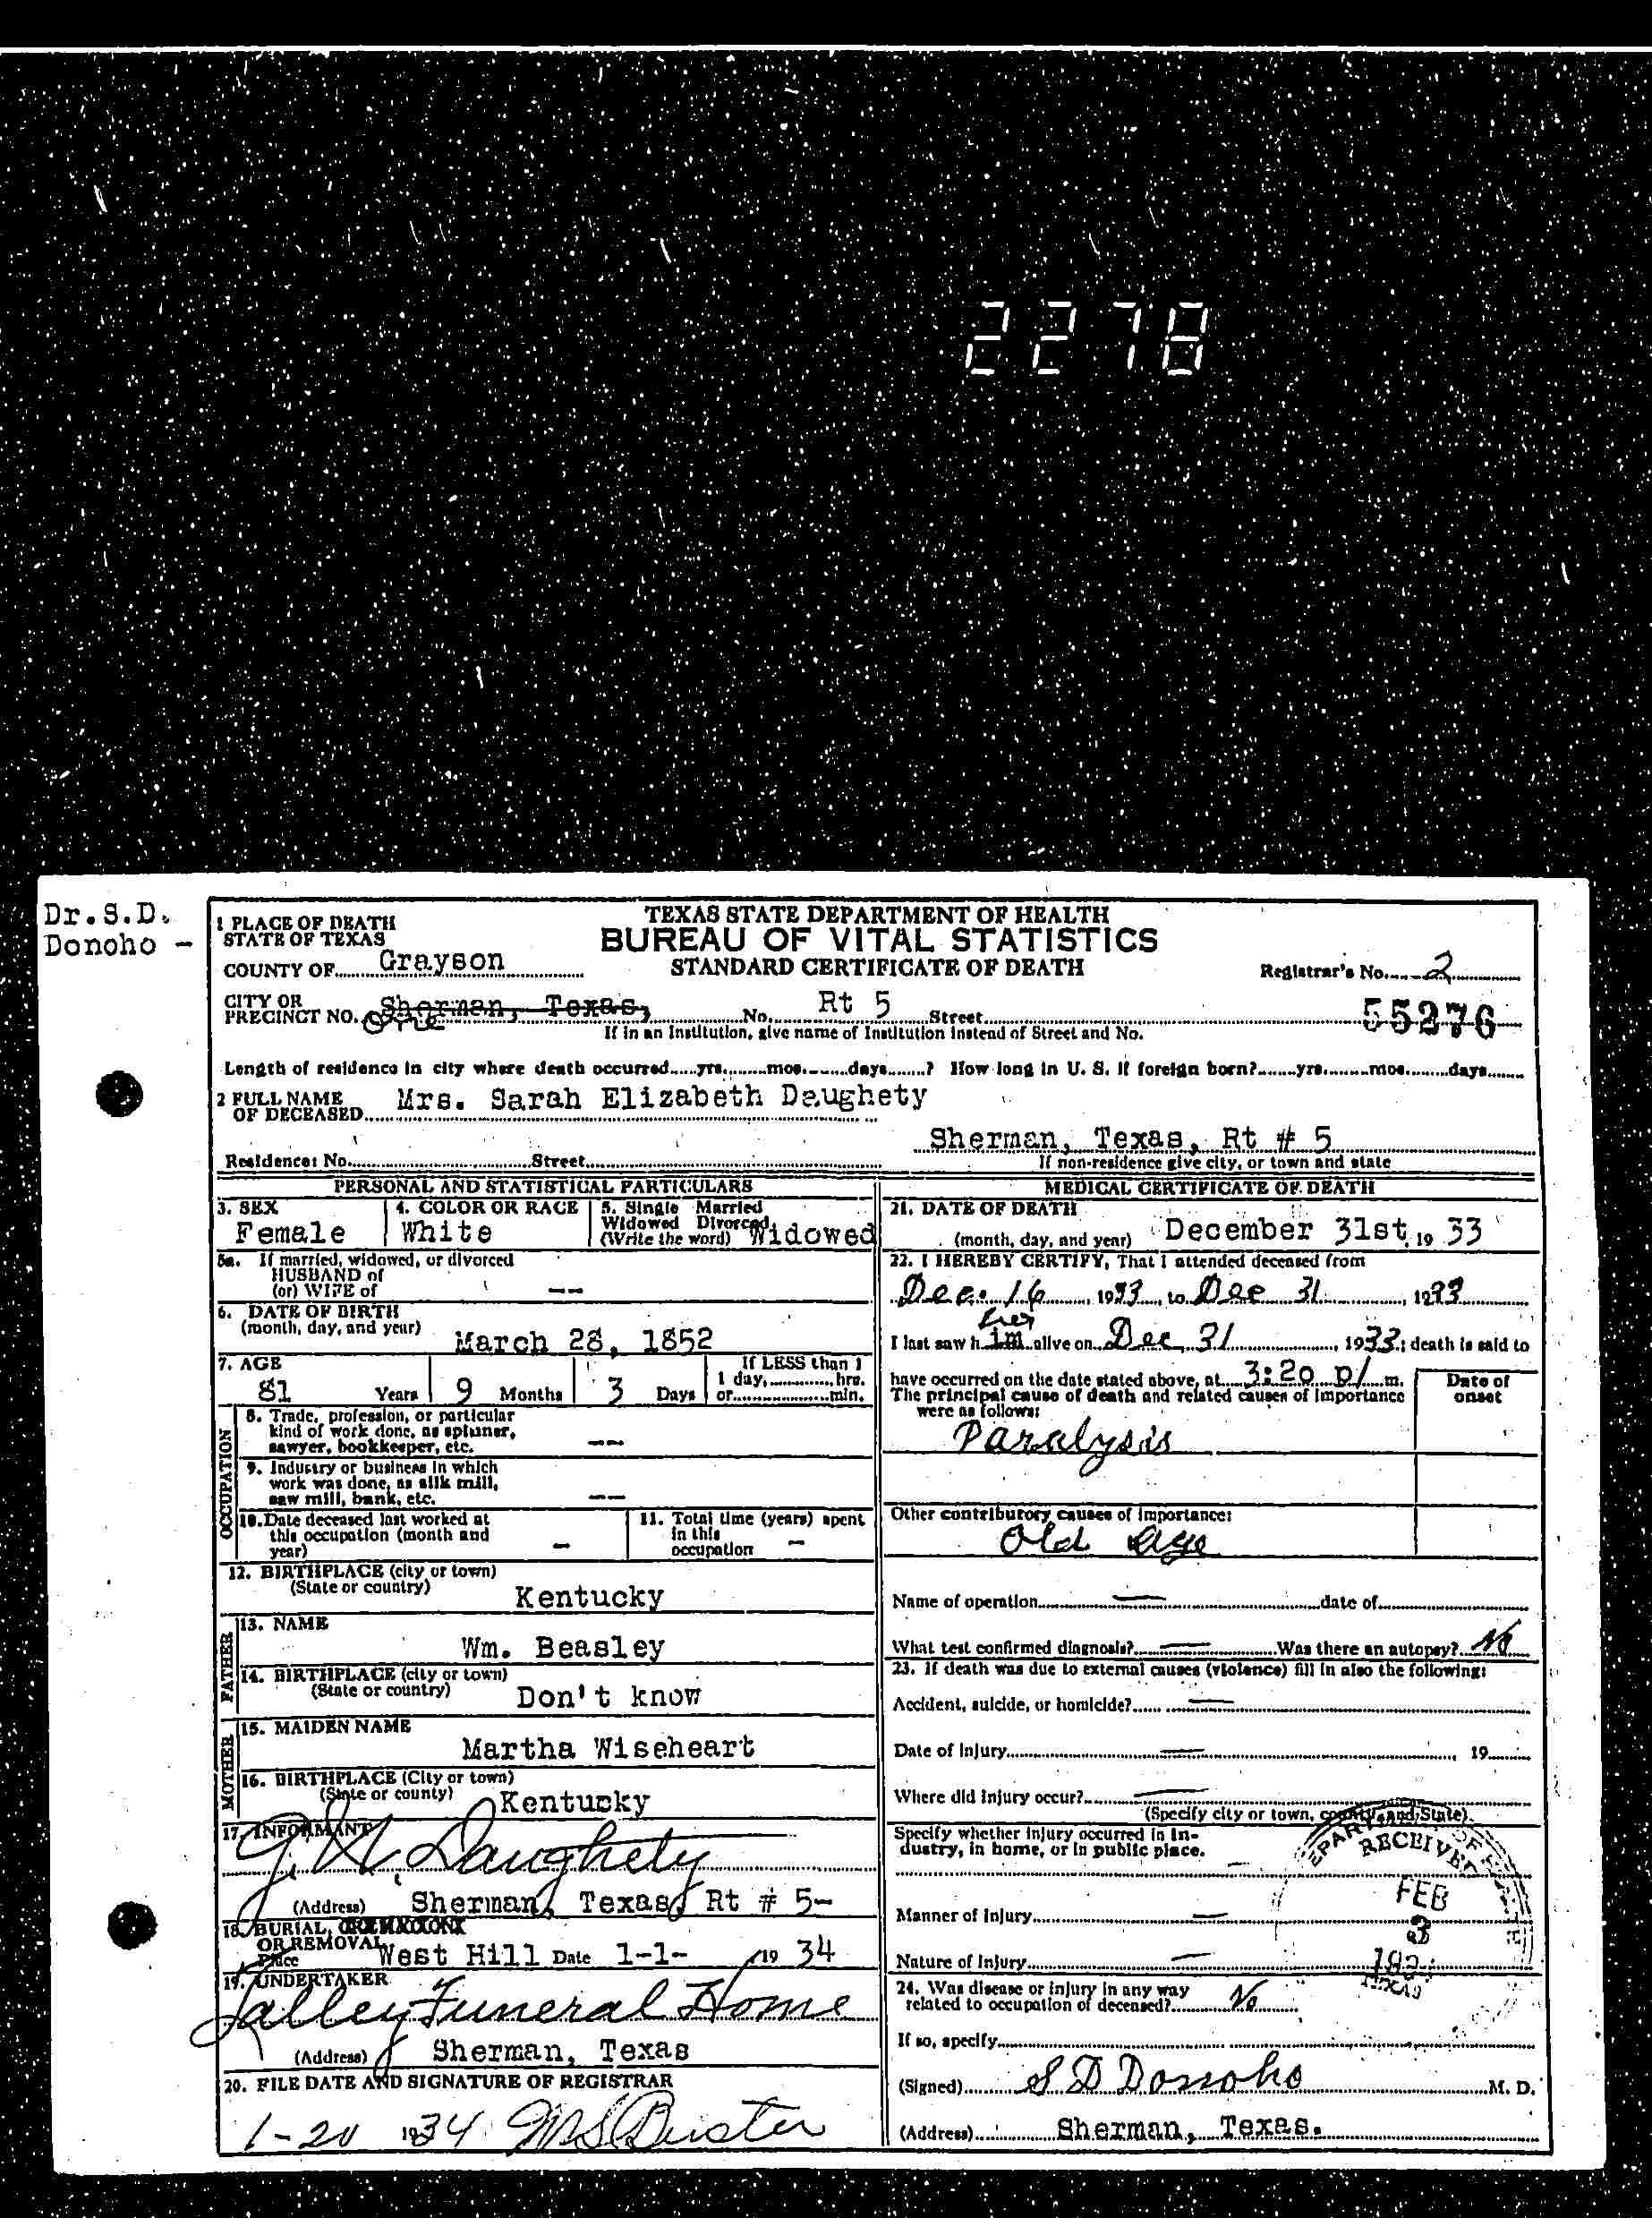 2278
Dr.S.D.
Donoho -
1 PLACE OF DEATH
STATE OF TEXAS
COUNTY OF Grayson
TEXAS STATE DEPARTMENT OF HEALTH
BUREAU OF VITAL STATISTICS
STANDARD CERTIFICATE OF DEATH
Registrar's No. 2
CITY OR
PRECINCT NO. Sherman, Texas, One No. Rt 5 Street 55276
If in an Institution, give name of Institution instead of Street and No.
Length of residence in city where death occurred yrs. mos. days ? How long in U. S. if foreign born? yrs. mos. days
2 FULL NAME
OF DECEASED Mrs. Sarah Elizabeth Daughety
Sherman, Texas, Rt # 5
Residence: No. Street
If non-residence give city, or town and state
PERSONAL AND STATISTICAL PARTICULARS
3. SEX Female
4. COLOR OR RACE White
5. Single Married
Widowed Divorced
(Write the word) Widowed
5a. If married, widowed, or divorced
HUSBAND of
(or) WIFE of --
6. DATE OF BIRTH
(month, day, and year) March 28, 1852
7. AGE
81 Years 9 Months 3 Days
If LESS than 1
1 day, hrs.
or min.
OCCUPATION
8. Trade, profession, or particular
kind of work done, as spinner,
sawyer, bookkeeper, etc. --
9. Industry or business in which
work was done, as silk mill,
saw mill, bank, etc. --
10. Date deceased last worked at
this occupation (month and
year) -
11. Total time (years) spent
in this
occupation -
12. BIRTHPLACE (city or town)
(State or country) Kentucky
FATHER
13. NAME
Wm. Beasley
14. BIRTHPLACE (city or town)
(State or country) Don't know
MOTHER
15. MAIDEN NAME
Martha Wiseheart
16. BIRTHPLACE (City or town)
(State or county) Kentucky
17. INFORMANT
Daughety
(Address) Sherman, Texas, Rt # 5-
18. BURIAL,
OR REMOVAL
Place West Hill Date 1-1- 19 34
19. UNDERTAKER
Funeral Home
(Address) Sherman, Texas
20. FILE DATE AND SIGNATURE OF REGISTRAR
1-20 1934
MEDICAL CERTIFICATE OF DEATH
21. DATE OF DEATH
(month, day, and year) December 31st, 19 33
22. I HEREBY CERTIFY, That I attended deceased from
Dec. 16, 1933, to Dec 31, 1933
her
I last saw h im alive on Dec 31, 1933; death is said to
have occurred on the date stated above, at 3:20 p m.
The principal cause of death and related causes of importance
were as follows:
Date of
onset
Paralysis
Other contributory causes of importance:
Old age
Name of operation — date of
What test confirmed diagnosis? — Was there an autopsy? No
23. If death was due to external causes (violence) fill in also the following:
Accident, suicide, or homicide? —
Date of injury — 19
Where did injury occur? —
(Specify city or town, county, and State)
Specify whether injury occurred in in-
dustry, in home, or in public place. —
Manner of injury —
Nature of injury —
RECEIVED
FEB
3
24. Was disease or injury in any way
related to occupation of deceased? No
If so, specify
(Signed) S D Donoho M. D.
(Address) Sherman, Texas.